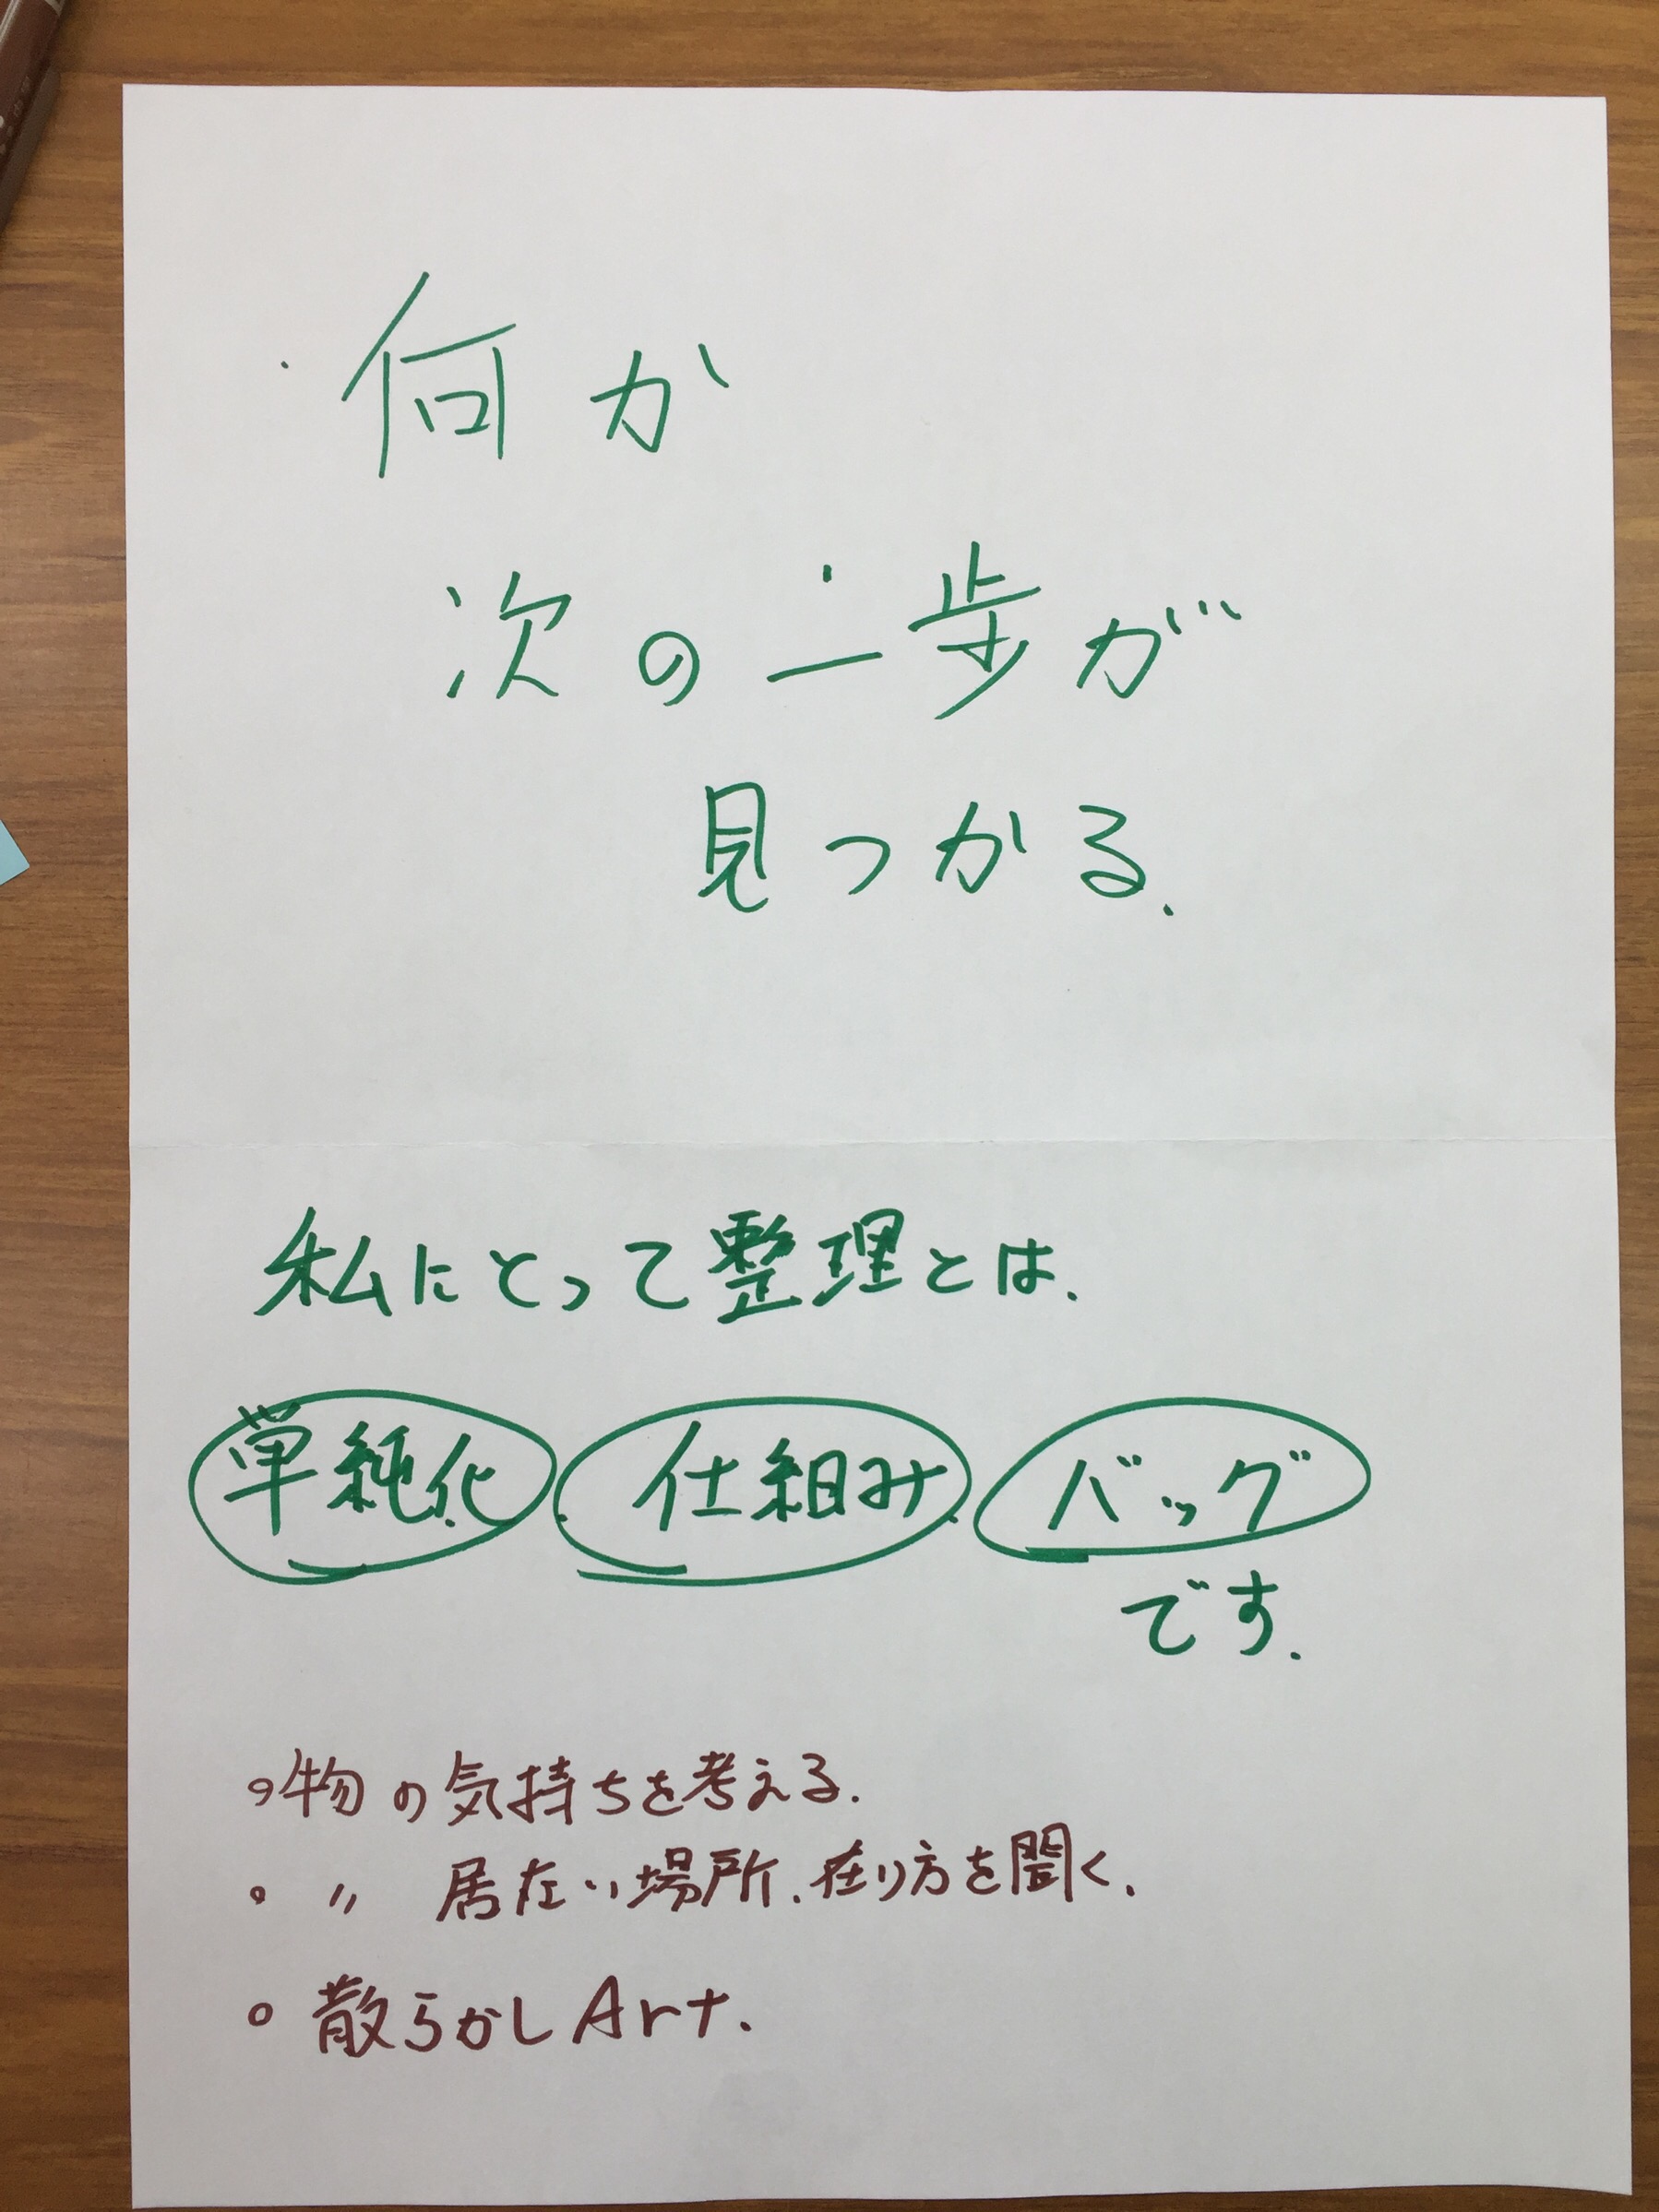 何か
次の一歩が
見つかる.
私にとって整理とは.
単純化 仕組み バッグ
です.
○物の気持ちを考える.
○ 〃 居在い場所.在り方を聞く.
○ 散らかしArt.